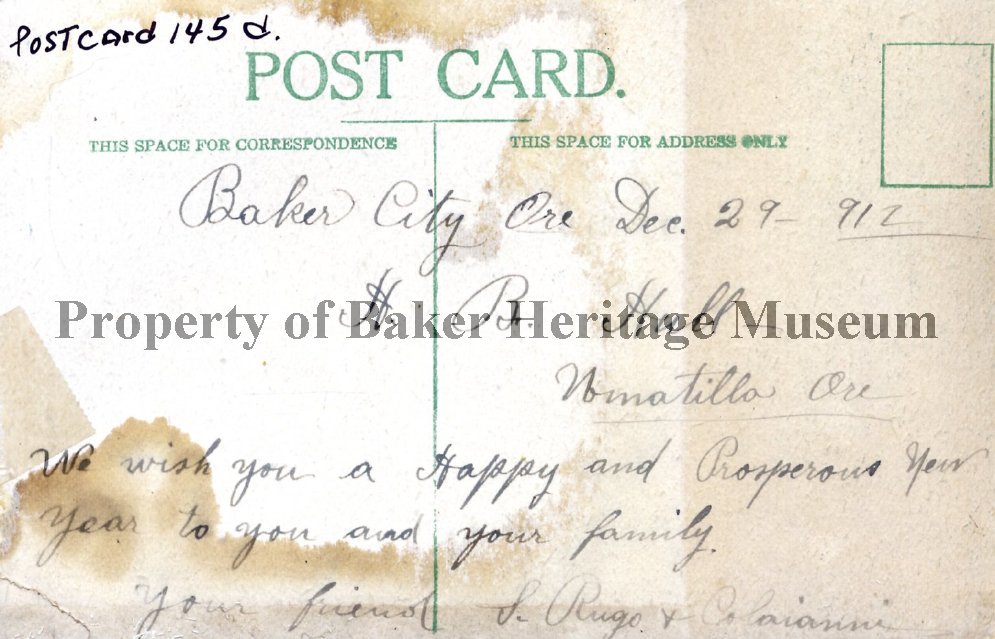 Postcard 145 d.
POST CARD.
THIS SPACE FOR CORRESPONDENCE
THIS SPACE FOR ADDRESS ONLY
Baker City Ore Dec. 29 - 912
H. B. Hall
Property of Baker Heritage Museum
Umatilla Ore
We wish you a Happy and Prosperous New
Year to you and your family.
Your friend S. Rugo & Colaianni